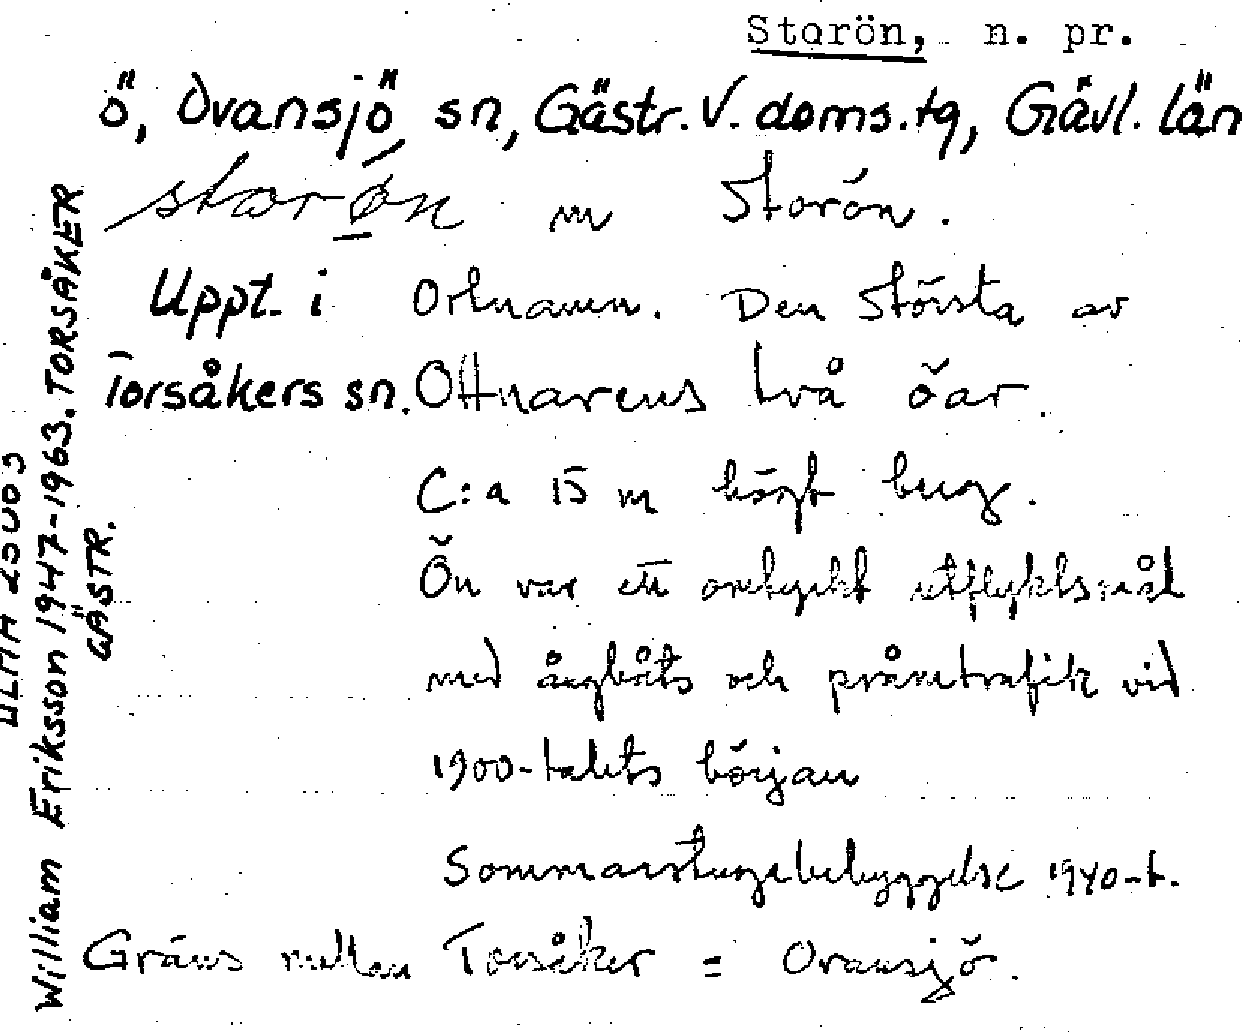 Storön, n. pr.
Ö, Ovansjö sn, Gästr. V. doms.tg, Gävl. län
storøn m Storön.
Uppt. i Ortnamn. Den största av
Torsåkers sn. Ottnarens två öar.
C:a 15 m högt berg.
Ön var ett omtyckt utflyktsmål
med ångbåts och pråmtrafik vid
1900-talets början
Sommarstugebebyggelse 1940-t.
Gräns mellan Torsåker = Ovansjö.
William Eriksson 1947-1963. TORSÅKER
GÄSTR.